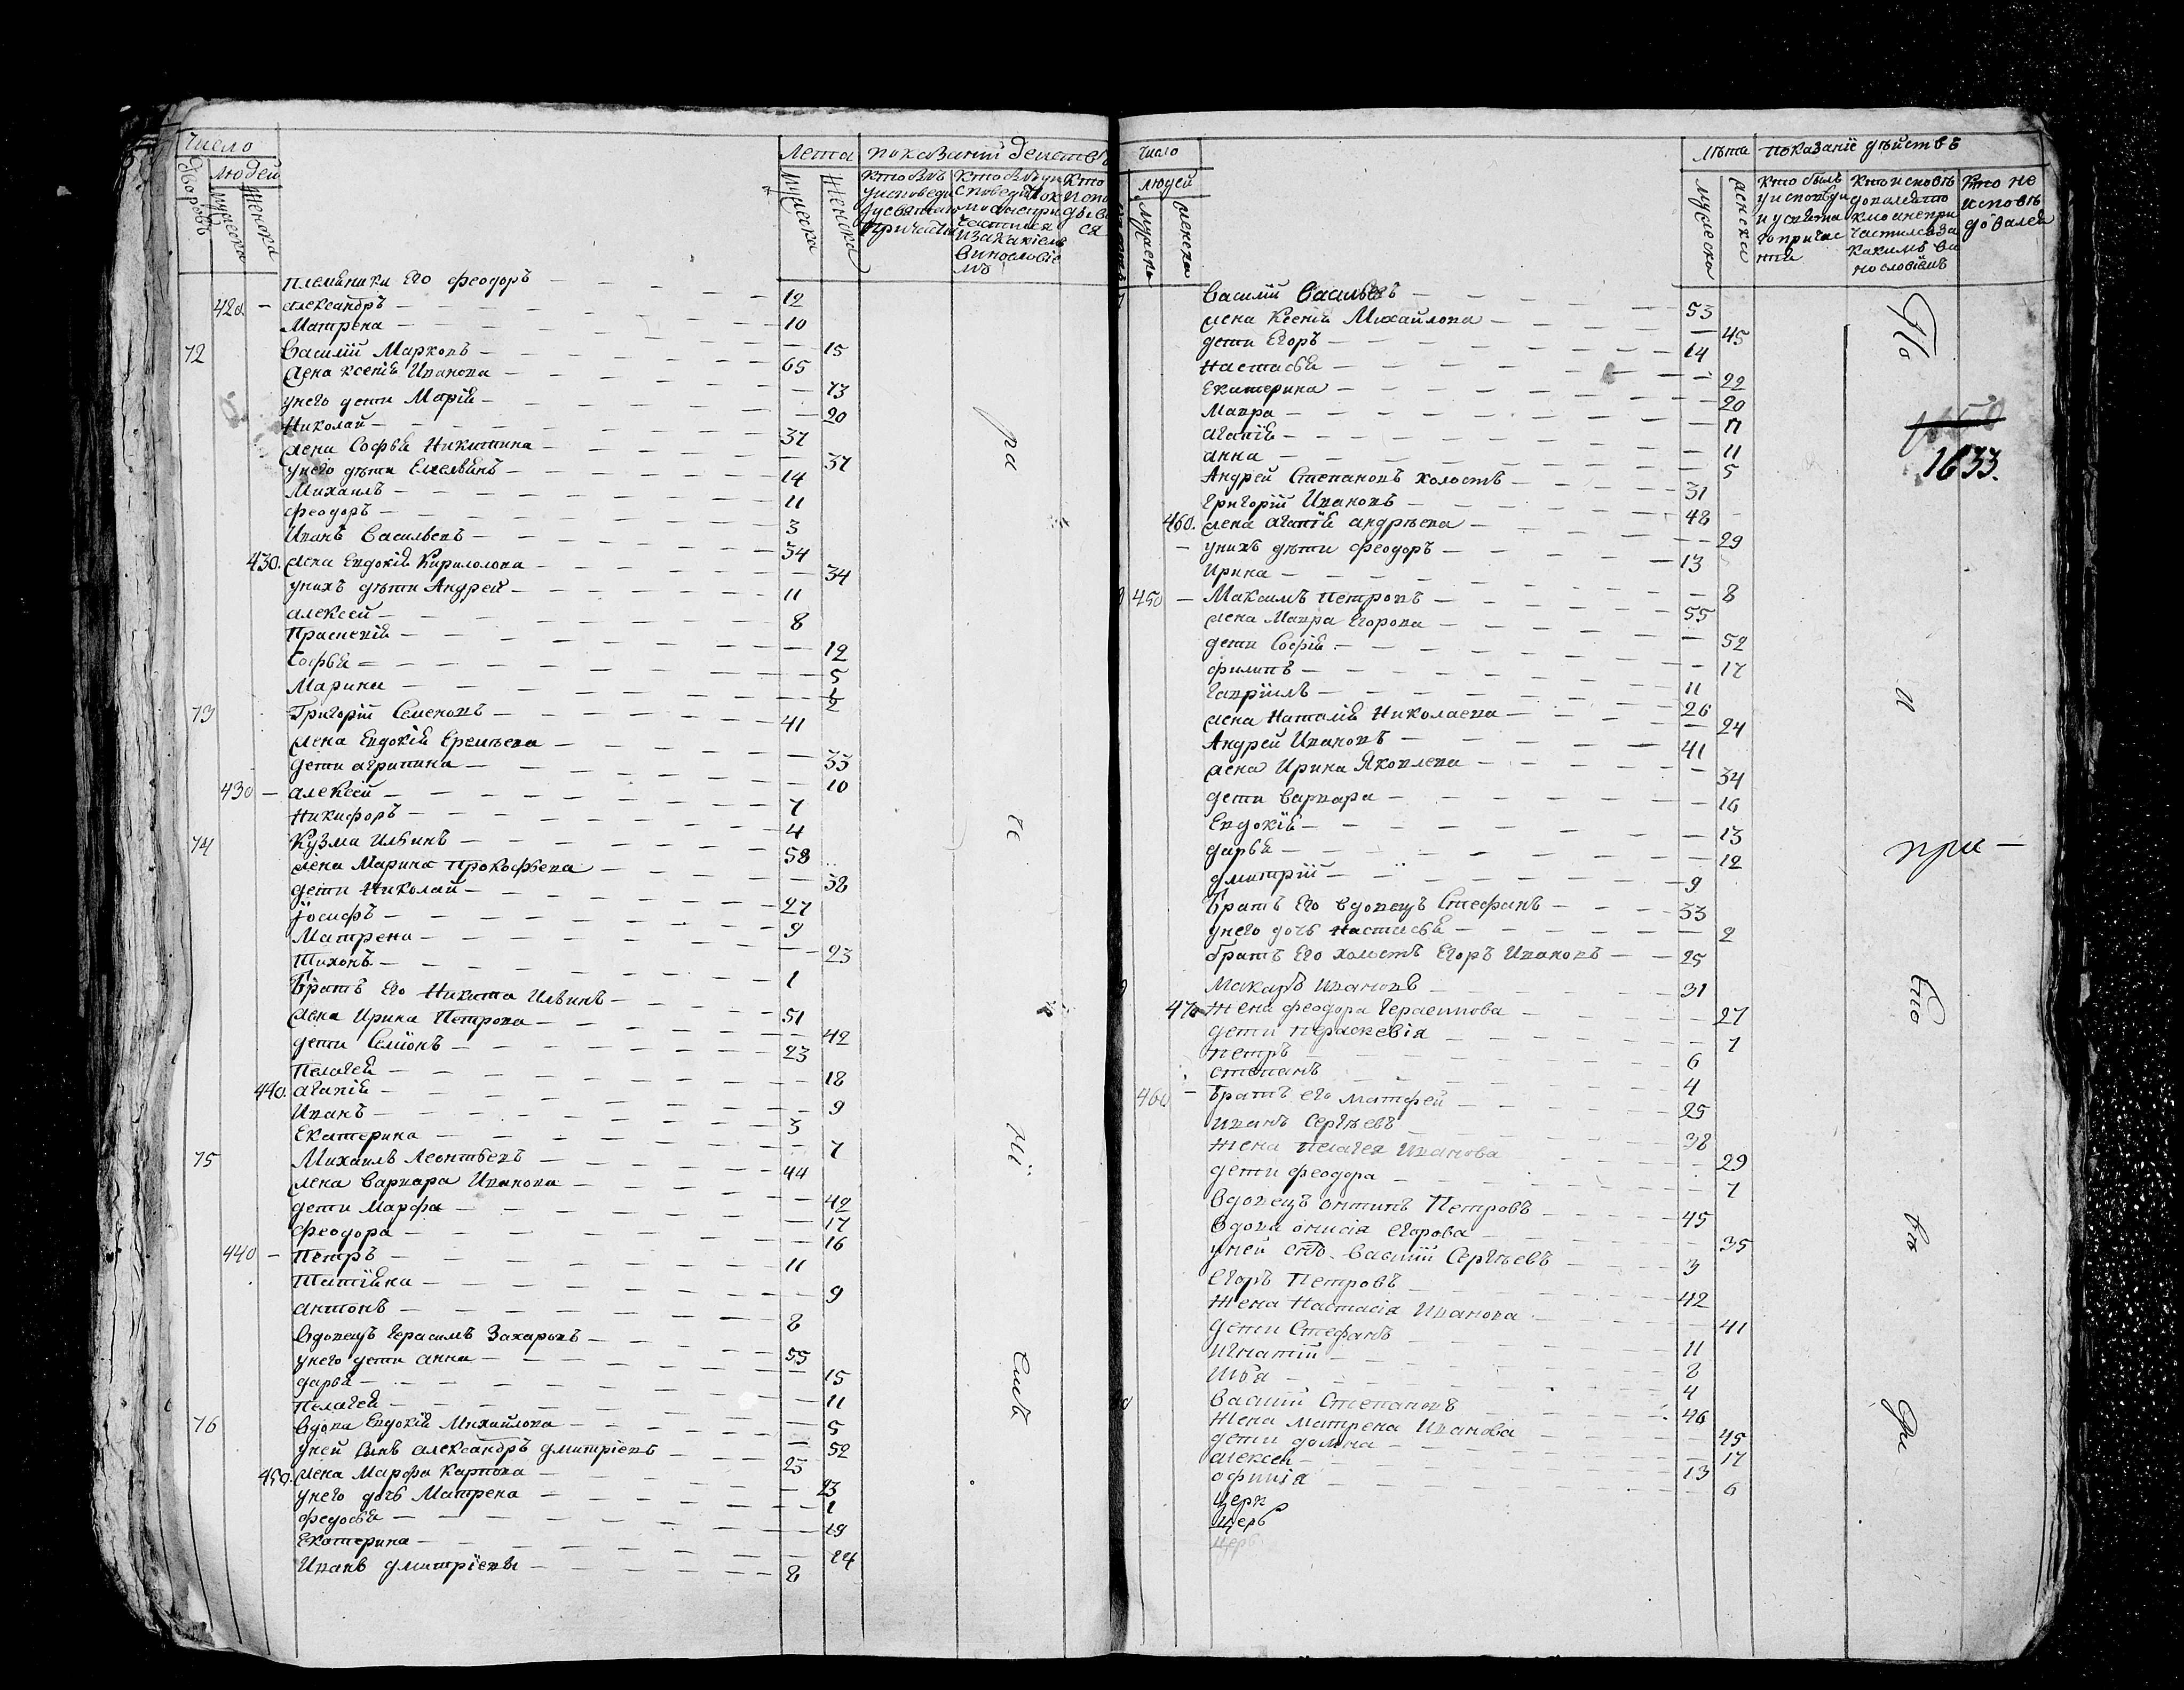 Число
Людей
Дворовъ
Мужеска
Женска
Лета
показаний действъ
Мужеска
Женска
племѣники Его Феодоръ — 12
420 — Александръ — 10
Матрена — 15
72 Василий Марковъ — 65
жена Ксения Иванова — 73
у него дети Мария — 20
Николай — 37
жена Софья Никитина — 37
у него дѣти — 14
Михаилъ — 11
Феодоръ — 3
Иванъ Васильевъ — 34
430. жена Евдокия Кирилолова — 34
у нихъ дѣти Андрей — 11
Алексей — 8
— 12
Софья — 5
Марина — 2
73 Григорий Семеновъ — 41
жена Евдокия — 33
дети Агрипина — 10
430 — Алексей — 7
Никифоръ — 4
74 Кузма Ильинъ — 58
жена Марина Прокофьева — 38
дети Николай — 27
Иосифъ — 9
Матрена — 23
Тихонъ — 1
Братъ Его Никита Ильинъ — 51
жена Ирина Петрова — 42
дети Семионъ — 23
Пелагея — 18
440. Агапия — 9
Иванъ — 3
Екатерина — 7
75 Михаилъ Леонтьевъ — 44
жена Варвара Иванова — 42
дети Марфа — 17
Феодора — 16
440 — Петръ — 11
Татияна — 9
Антонъ — 8
вдовецъ Герасимъ Захаровъ — 55
у него дети Анна — 15
Дарья — 11
Пелагея — 5
76 вдова Евдокия Михайлова — 52
у ней сынъ Александръ Дмитриевъ — 25
450. жена Марфа Карпова — 23
у него дочь Матрена — 1
Федосья — 19
Екатерина — 14
Иванъ Дмитриевъ — 8
Число
людей
Мужеска
женска
Лѣта
показаніе дѣйствъ
мужеска
женска
Кто не исповѣдовался
Василий Васильевъ — 53
жена Ксения Михайлова — 45
дети Егоръ — 14
Настасья — 22
Екатерина — 20
Мавра — 17
Агапия — 11
Анна — 5
Андрей Степановъ холостъ — 31
Григорий Ивановъ — 48
460. жена Агапия Андрѣева — 29
у нихъ дѣти Феодоръ — 13
Ирина — 8
450 — Максимъ Петровъ — 55
жена Мавра Егорова — 52
дети София — 17
Филипъ — 11
Гавриилъ — 26
жена Наталия Николаева — 24
Андрей Ивановъ — 41
жена Ирина Яковлева — 34
дети Варвара — 16
Евдокия — 13
Дарья — 12
Дмитрий — 9
Братъ Его вдовецъ Стефанъ — 33
у него дочь Настасья — 2
братъ Его холостъ Егоръ Ивановъ — 25
Макаръ Ивановъ — 31
470 Жена Феодора Герасимова — 27
дети Параскевiя — 1
Петръ — 6
Степанъ — 4
460 — Братъ его Матфей — 25
Иванъ Сергѣевъ — 38
Жена Пелагея Иванова — 29
дети Феодора — 1
Вдовецъ Антипъ Петровъ — 45
Вдова Анисiя Егорова — 35
у ней Василий Сергѣевъ — 3
Егоръ Петровъ — 42
Жена Настасiя Иванова — 41
дети Стефанъ — 11
Игнатий — 8
Илья — 4
Василий Степановъ — 46
Жена Матрена Иванова — 45
дети Домна — 17
Алексей — 13
Офимiя — 6
Церк
Церь
1633.
при —